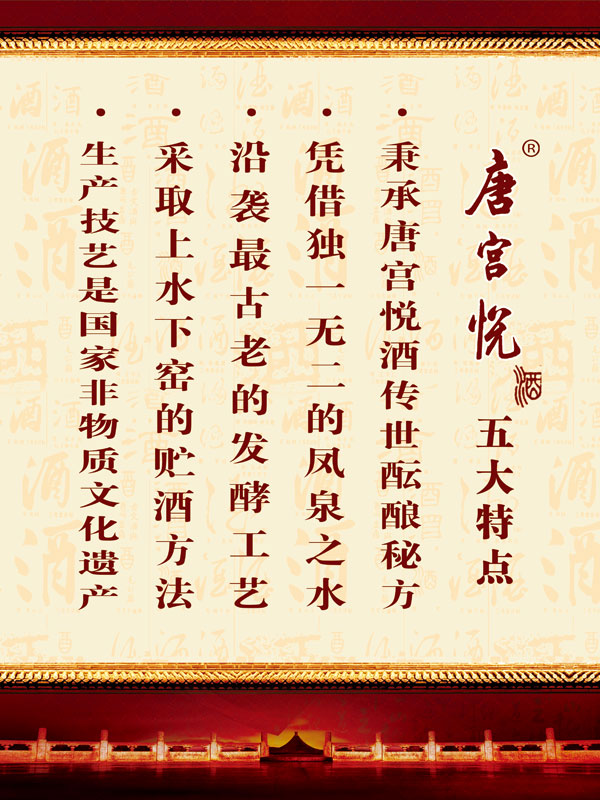 唐宫悦®
酒
五大特点
• 秉承唐宫悦酒传世酝酿秘方
• 凭借独一无二的凤泉之水
• 沿袭最古老的发酵工艺
• 采取上水下窑的贮酒方法
• 生产技艺是国家非物质文化遗产